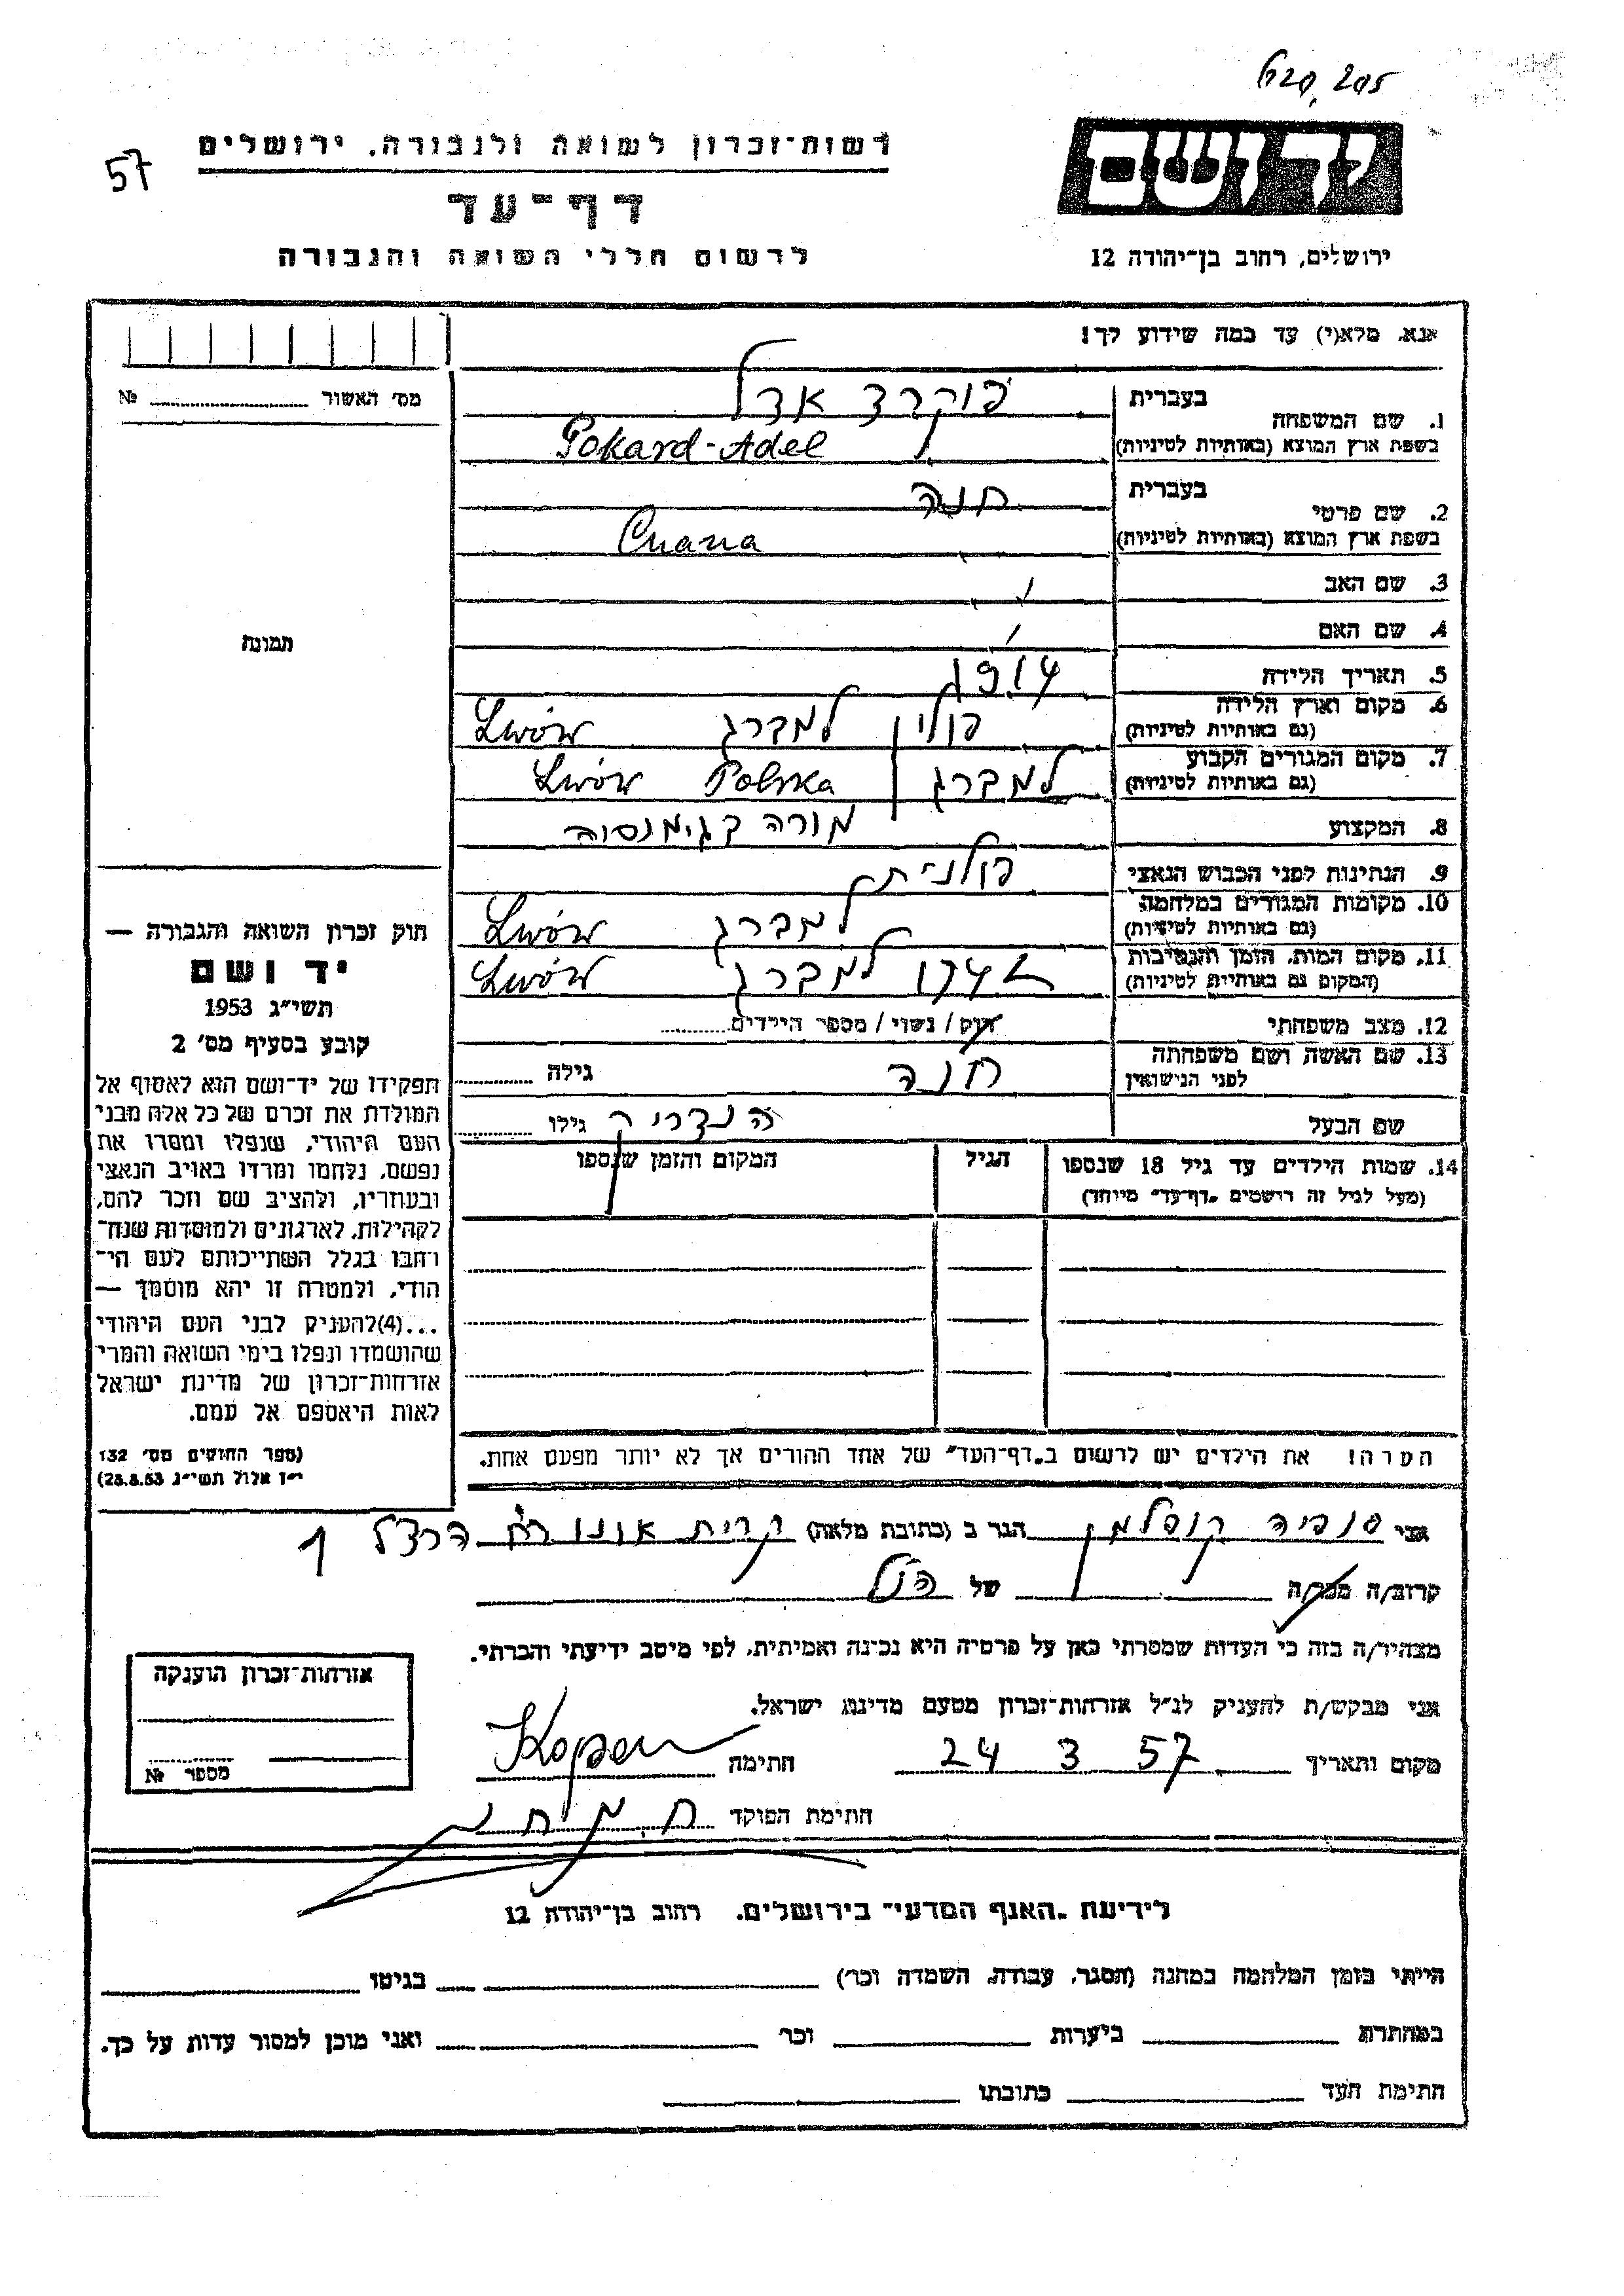 205
57
רשות־זכרון לשואה ולגבורה, ירושלים
דף־עד
לרשום חללי השואה והגבורה
יד ושם
ירושלים, רחוב בן־יהודה 12
אנא, מלא(י) עד כמה שידוע לך!
מס׳ האשור № 
1. שם המשפחה
בעברית פוקרד אדל
בשפת ארץ המוצא (באותיות לטיניות) Pokard-Adel
2. שם פרטי
בעברית חנה
בשפת ארץ המוצא (באותיות לטיניות) Chana
3. שם האב
4. שם האם
תמונה
5. תאריך הלידה
6. מקום וארץ הלידה
(גם באותיות לטיניות) פולין למברג Lwów
7. מקום המגורים הקבוע
(גם באותיות לטיניות) למברג Polska Lwów
8. המקצוע מורה בגימנסיה
9. הנתינות לפני הכבוש הנאצי פולנית
10. מקומות המגורים במלחמה
(גם באותיות לטיניות) למברג Lwów
11. מקום המות, הזמן והנסיבות
(המקום גם באותיות לטיניות) למברג Lwów
12. מצב משפחתי רווק / נשוי / מספר הילדים
13. שם האשה ושם משפחתה
לפני הנישואין חנה גילה
שם הבעל הנדריק גילו
14. שמות הילדים עד גיל 18 שנספו הגיל המקום והזמן שנספו
(מעל לגיל זה רושמים „דף־עד״ מיוחד)
הערה! את הילדים יש לרשום ב„דף־העד״ של אחד ההורים אך לא יותר מפעם אחת.
חוק זכרון השואה והגבורה —
יד ושם
תשי״ג 1953
קובע בסעיף מס׳ 2
תפקידו של יד־ושם הוא לאסוף אל
המולדת את זכרם של כל אלה מבני
העם היהודי, שנפלו ומסרו את
נפשם, נלחמו ומרדו באויב הנאצי
ובעוזריו, ולהציב שם וזכר להם,
לקהילות, לארגונים ולמוסדות שנח־
רחבו בגלל השתייכותם לעם הי־
הודי, ולמטרה זו יהא מוסמך —
...(4)להעניק לבני העם היהודי
שהושמדו ונפלו בימי השואה והמרי
אזרחות־זכרון של מדינת ישראל
לאות היאספם אל עמם.
(ספר החוקים מס׳ 132
י״ז אלול תשי״ג 28.8.53)
אני סופיה קופלמן הגר ב (כתובת מלאה) קרית אונו רח׳ הרצל 1
קרוב/ה מכר/ה של הנ״ל
מצהיר/ה בזה כי העדות שמסרתי כאן על פרטיה היא נכונה ואמיתית, לפי מיטב ידיעתי והכרתי.
אני מבקש/ת להעניק לנ״ל אזרחות־זכרון מטעם מדינת ישראל.
מקום ותאריך 24 3 57 חתימה
חתימת הפוקד
אזרחות־זכרון הוענקה
מספר №
לידיעת „האגף המדעי״ בירושלים, רחוב בן־יהודה 12
הייתי בזמן המלחמה במחנה (הסגר, עבודה, השמדה וכו׳) בגיטו
במחתרת ביערות וכו׳ ואני מוכן למסור עדות על כך.
חתימת העד כתובתו